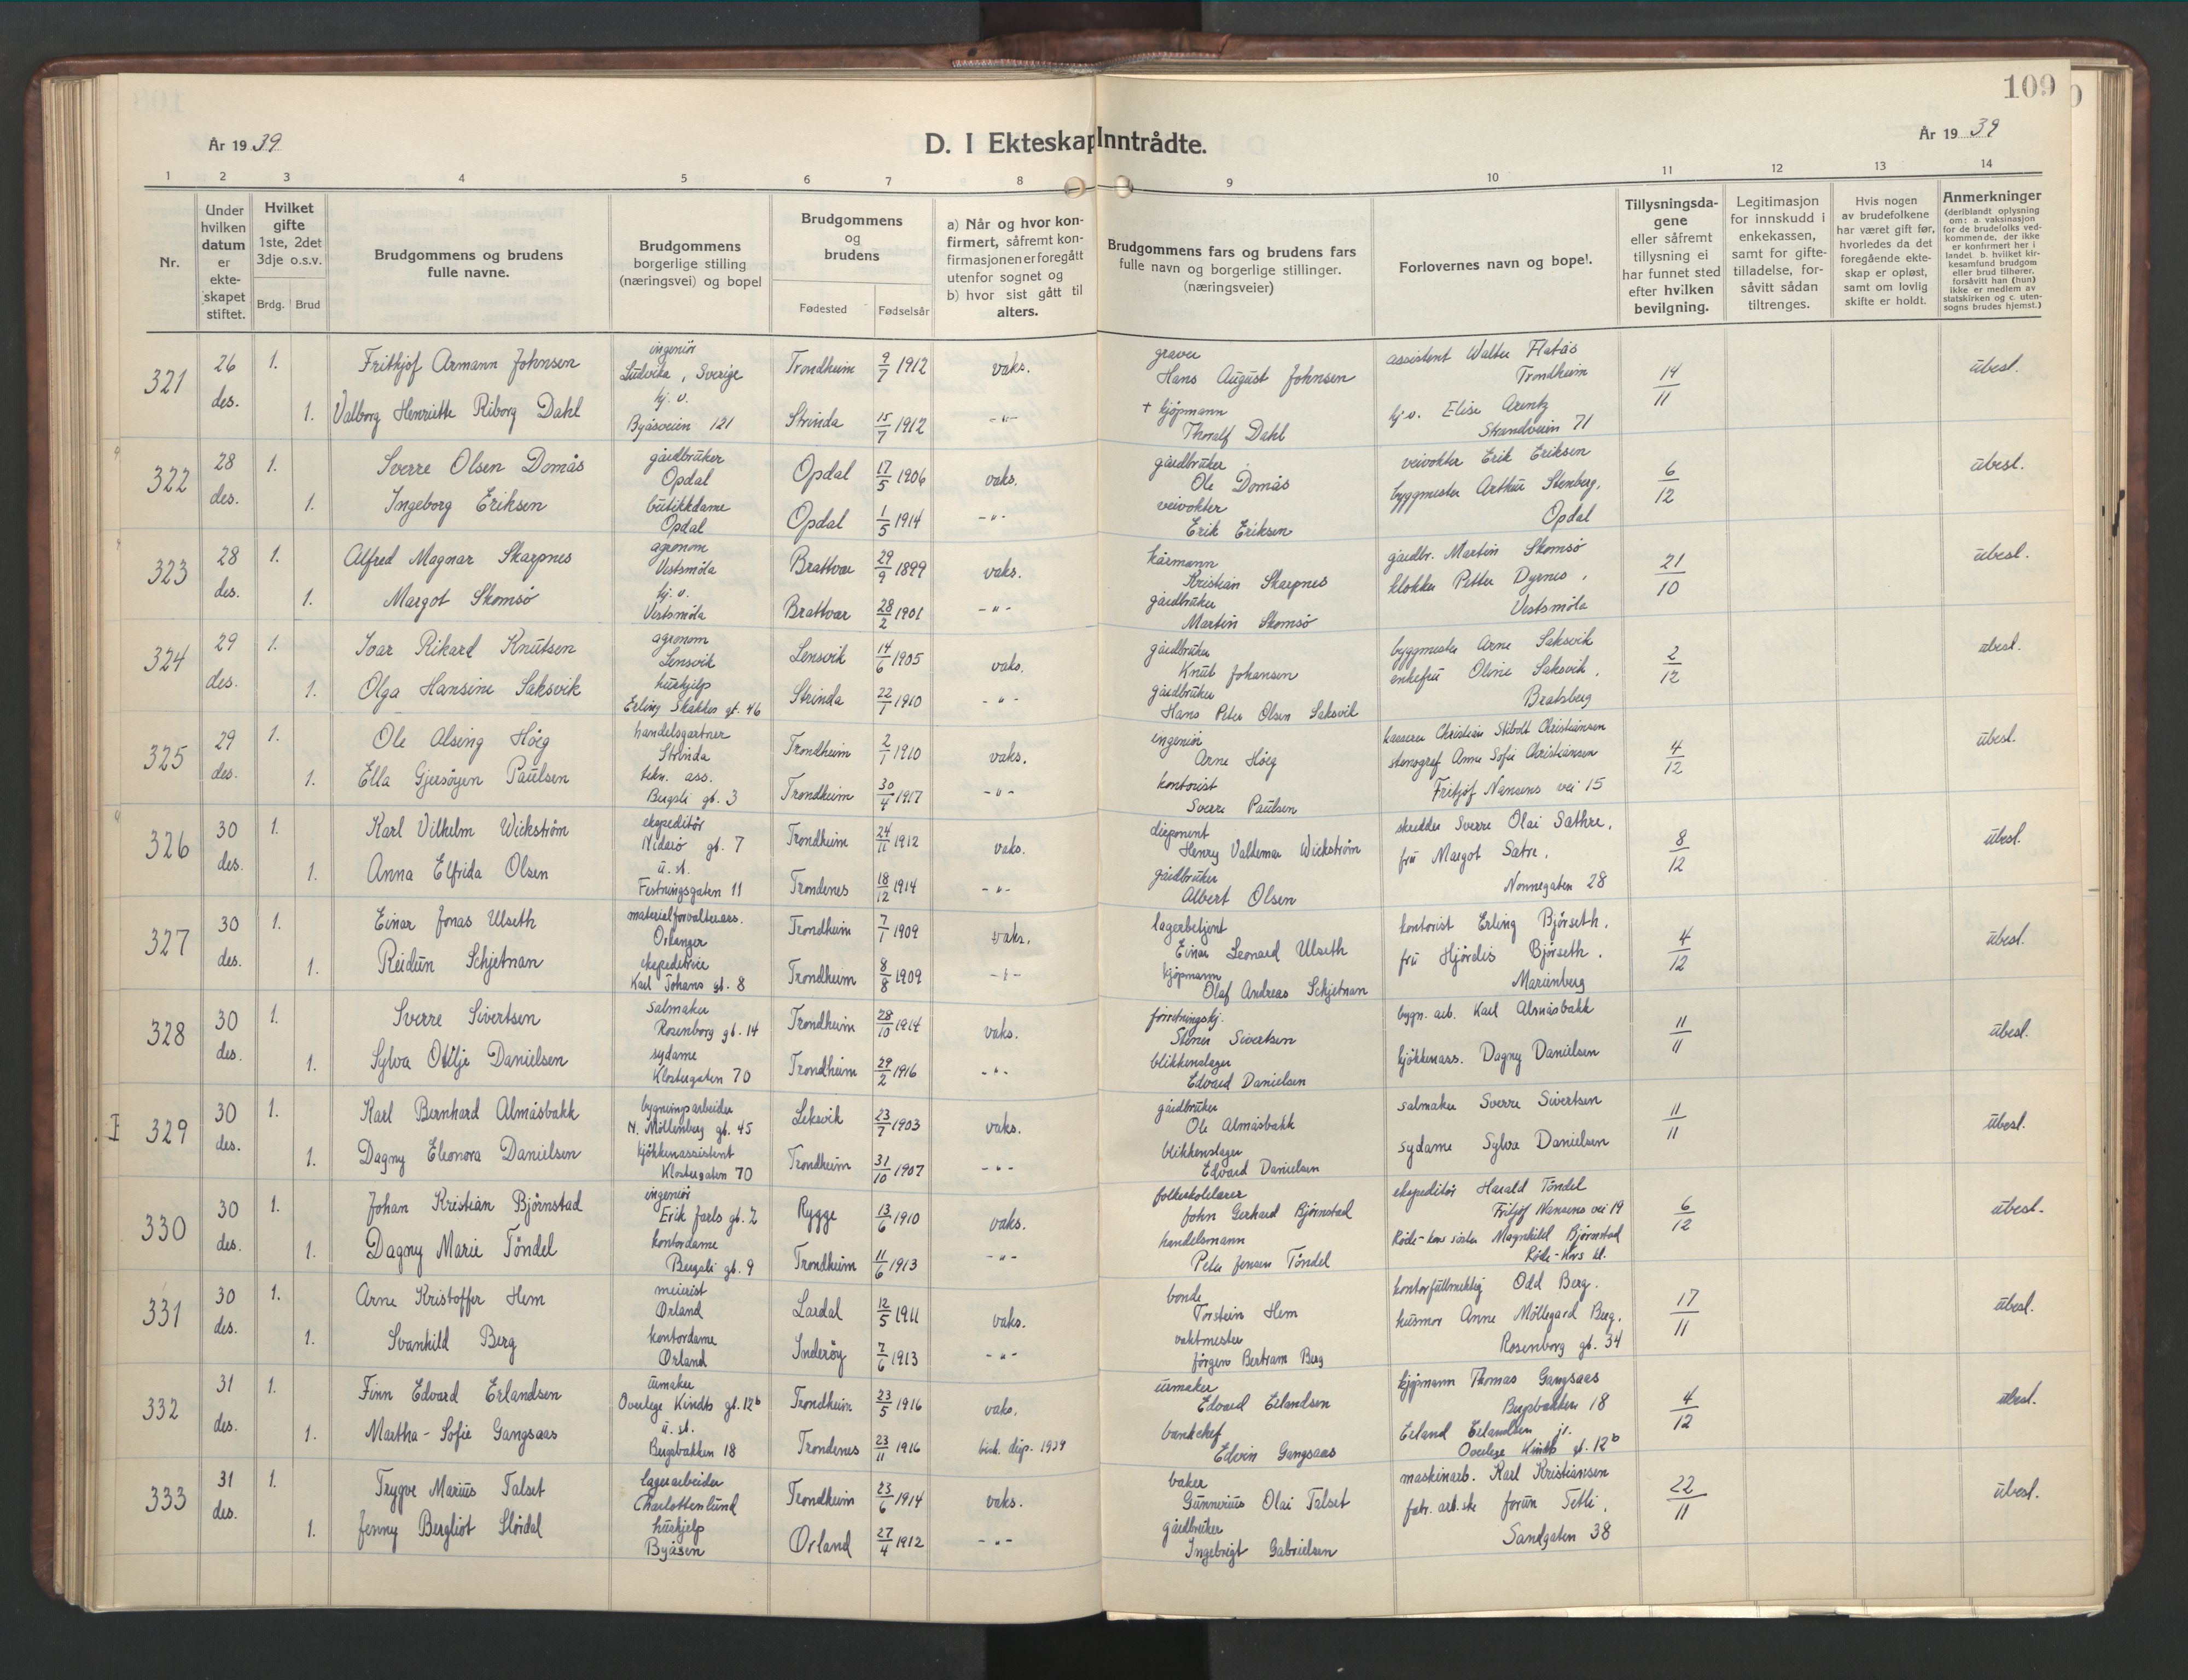 109
År 1939
D. I Ekteskap Inntrådte.
År 1939
1 2 3 4 5 6 7 8 9 10 11 12 13 14
Nr.
Under hvilken datum er ekteskapet stiftet.
Hvilket gifte 1ste, 2det 3dje o.s.v.
Brdg. Brud
Brudgommens og brudens fulle navne.
Brudgommens borgerlige stilling (næringsvei) og bopel
Brudgommens og brudens
Fødested Fødselsår
a) Når og hvor konfirmert, såfremt konfirmasjonen er foregått utenfor sognet og b) hvor sist gått til alters.
Brudgommens fars og brudens fars fulle navn og borgerlige stillinger. (næringsveier)
Forlovernes navn og bopel.
Tillysningsdagene eller såfremt tillysning ei har funnet sted efter hvilken bevilgning.
Legitimasjon for innskudd i enkekassen, samt for giftetilladelse, forsåvitt sådan tiltrenges.
Hvis nogen av brudefolkene har været gift før, hvorledes da det foregående ekteskap er opløst, samt om lovlig skifte er holdt.
Anmerkninger (deriblandt oplysning om: a. vaksinasjon for de brudefolks vedkommende, der ikke er konfirmert her i landet b. hvilket kirkesamfund brudgom eller brud tilhører, forsåvitt han (hun) ikke er medlem av statskirken og c. utensogns brudes hjemst.)
321 26 des. 1. Frithjof Armann Johnsen ingeniør Ludvika, Sverige Trondheim 9/7 1912 vaks. graver Hans August Johnsen assistent Walter Flatås Trondheim 14/11 ubesl.
1. Valborg Henriette Riborg Dahl hj. v. Byåsveien 121 Strinda 15/7 1912 -"- + kjøpmann Thoralf Dahl hj.v. Elise Arentz Strandveien 71
322 28 des. 1. Sverre Olsen Domås gårdbruker Opdal Opdal 17/5 1906 vaks. gårdbruker Ole Domås veivokter Erik Eriksen 6/12 ubesl.
1. Ingeborg Eriksen butikkdame Opdal Opdal 1/5 1914 -"- veivokter Erik Eriksen byggmester Arthur Stenberg, Opdal
323 28 des. 1. Alfred Magnar Skarpnes agronom Vestsmøla Brattvær 29/9 1899 vaks. kårmann Kristian Skarpnes gårdbr. Martin Skomsø 21/10 ubesl.
1. Margot Skomsø hj. v. Vestsmøla Brattvær 28/2 1901 -"- gårdbruker Martin Skomsø klokker Petter Dyrnes, Vestsmøla
324 29 des. 1. Ivar Rikard Knutsen agronom Lensvik Lensvik 14/6 1905 vaks. gårdbruker Knut Johansen byggmester Arne Saksvik 2/12 ubesl.
1. Olga Hansine Saksvik hushjelp Erling Skakkes gt. 46 Strinda 22/1 1910 -"- gårdbruker Hans Peter Olsen Saksvik enkefru Oline Saksvik, Bratsberg
325 29 des. 1. Ole Alsing Høeg handelsgartner Strinda Trondheim 2/1 1910 vaks. ingeniør Arne Høeg kasserer Christian Stibolt Christiansen 4/12 ubesl.
1. Ella Gjersøyen Paulsen tekn. ass. Bergsli gt. 3 Trondheim 30/4 1917 -"- kontorist Sverre Paulsen stenograf Anna Sofie Christiansen Fritjof Nansens vei 15
326 30 des. 1. Karl Vilhelm Wickstrøm ekspeditør Nidarø gt. 7 Trondheim 24/11 1912 vaks. disponent Henry Valdemar Wickstrøm skredder Sverre Olai Sathre, 8/12 ubesl.
1. Anna Elfrida Olsen u. st. Festningsgaten 11 Trondenes 18/12 1914 -"- gårdbruker Albert Olsen fru Margot Satre, Nonnegaten 28
327 30 des. 1. Einar Jonas Ulseth materialforvalterass. Orkanger Trondheim 7/1 1909 vaks. lagerbetjent Einar Leonard Ulseth kontorist Erling Bjørseth, 4/12 ubesl.
1. Reidun Schjetnan ekspeditrice Karl Johans gt. 8 Trondheim 8/8 1909 -"- kjøpmann Olaf Andreas Schjetnan fru Hjørdis Bjørseth, Marienberg
328 30 des. 1. Sverre Sivertsen salmaker Rosenborg gt. 14 Trondheim 28/10 1914 vaks. forretningsbj. Stener Sivertsen bygn. arb. Karl Almåsbakk 11/11 ubesl.
1. Sylva Otilje Danielsen sydame Klostergaten 70 Trondheim 29/2 1916 -"- blikkenslager Edvard Danielsen kjøkkenass. Dagny Danielsen
I 329 30 des. 1. Karl Bernhard Almåsbakk bygningsarbeider N. Møllenberg gt. 45 Leksvik 23/7 1903 vaks. gårdbruker Ole Almåsbakk salmaker Sverre Sivertsen 11/11 ubesl.
1. Dagny Eleonora Danielsen kjøkkenassistent Klostergaten 70 Trondheim 31/10 1907 -"- blikkenslager Edvard Danielsen sydame Sylva Danielsen
330 30 des. 1. Johan Kristian Bjørnstad ingeniør Erik Jarls gt. 2 Rygge 13/6 1910 vaks. folkeskolelærer John Gerhard Bjørnstad ekspeditør Harald Tøndel Fritjof Nansens vei 19 6/12 ubesl.
1. Dagny Marie Tøndel kontordame Bergsli gt. 9 Trondheim 11/6 1913 -"- handelsmann Peter Jensen Tøndel Røde-kors søster Magnhild Bjørnstad Røde-kors kl.
331 30 des. 1. Arne Kristoffer Hem meierist Ørland Lardal 12/5 1911 vaks. bonde Torstein Hem kontorfullmektig Odd Berg. 17/11 ubesl.
1. Svanhild Berg kontordame Ørland Inderøy 7/6 1913 -"- vaktmester Jørgen Bertram Berg husmor Anne Møllegard Berg, Rosenborg gt. 34
332 31 des. 1. Finn Edvard Erlandsen urmaker Overlege Kindts gt. 12b Trondheim 23/5 1916 vaks. urmaker Edvard Erlandsen kjøpmann Thomas Gangsaas Bergsbakken 18 4/12 ubesl.
1. Martha-Sofie Gangsaas u. st. Bergsbakken 18 Trondenes 23/11 1916 bisk. disp. 1939 banksjef Edvin Gangsaas Erland Erlandsen jr. Overlege Kindts gt. 12b
333 31 des. 1. Trygve Marius Talset lagerarbeider Charlottenlund Trondheim 23/6 1914 vaks. baker Gunnerius Olai Talset maskinarb. Karl Kristiansen 22/11 ubesl.
1. Jenny Bergliot Slördal hushjelp Byåsen Ørland 27/4 1912 -"- gårdbruker Ingebrigt Gabrielsen fabr. arb.ske Jorun Tetli, Sandgaten 38